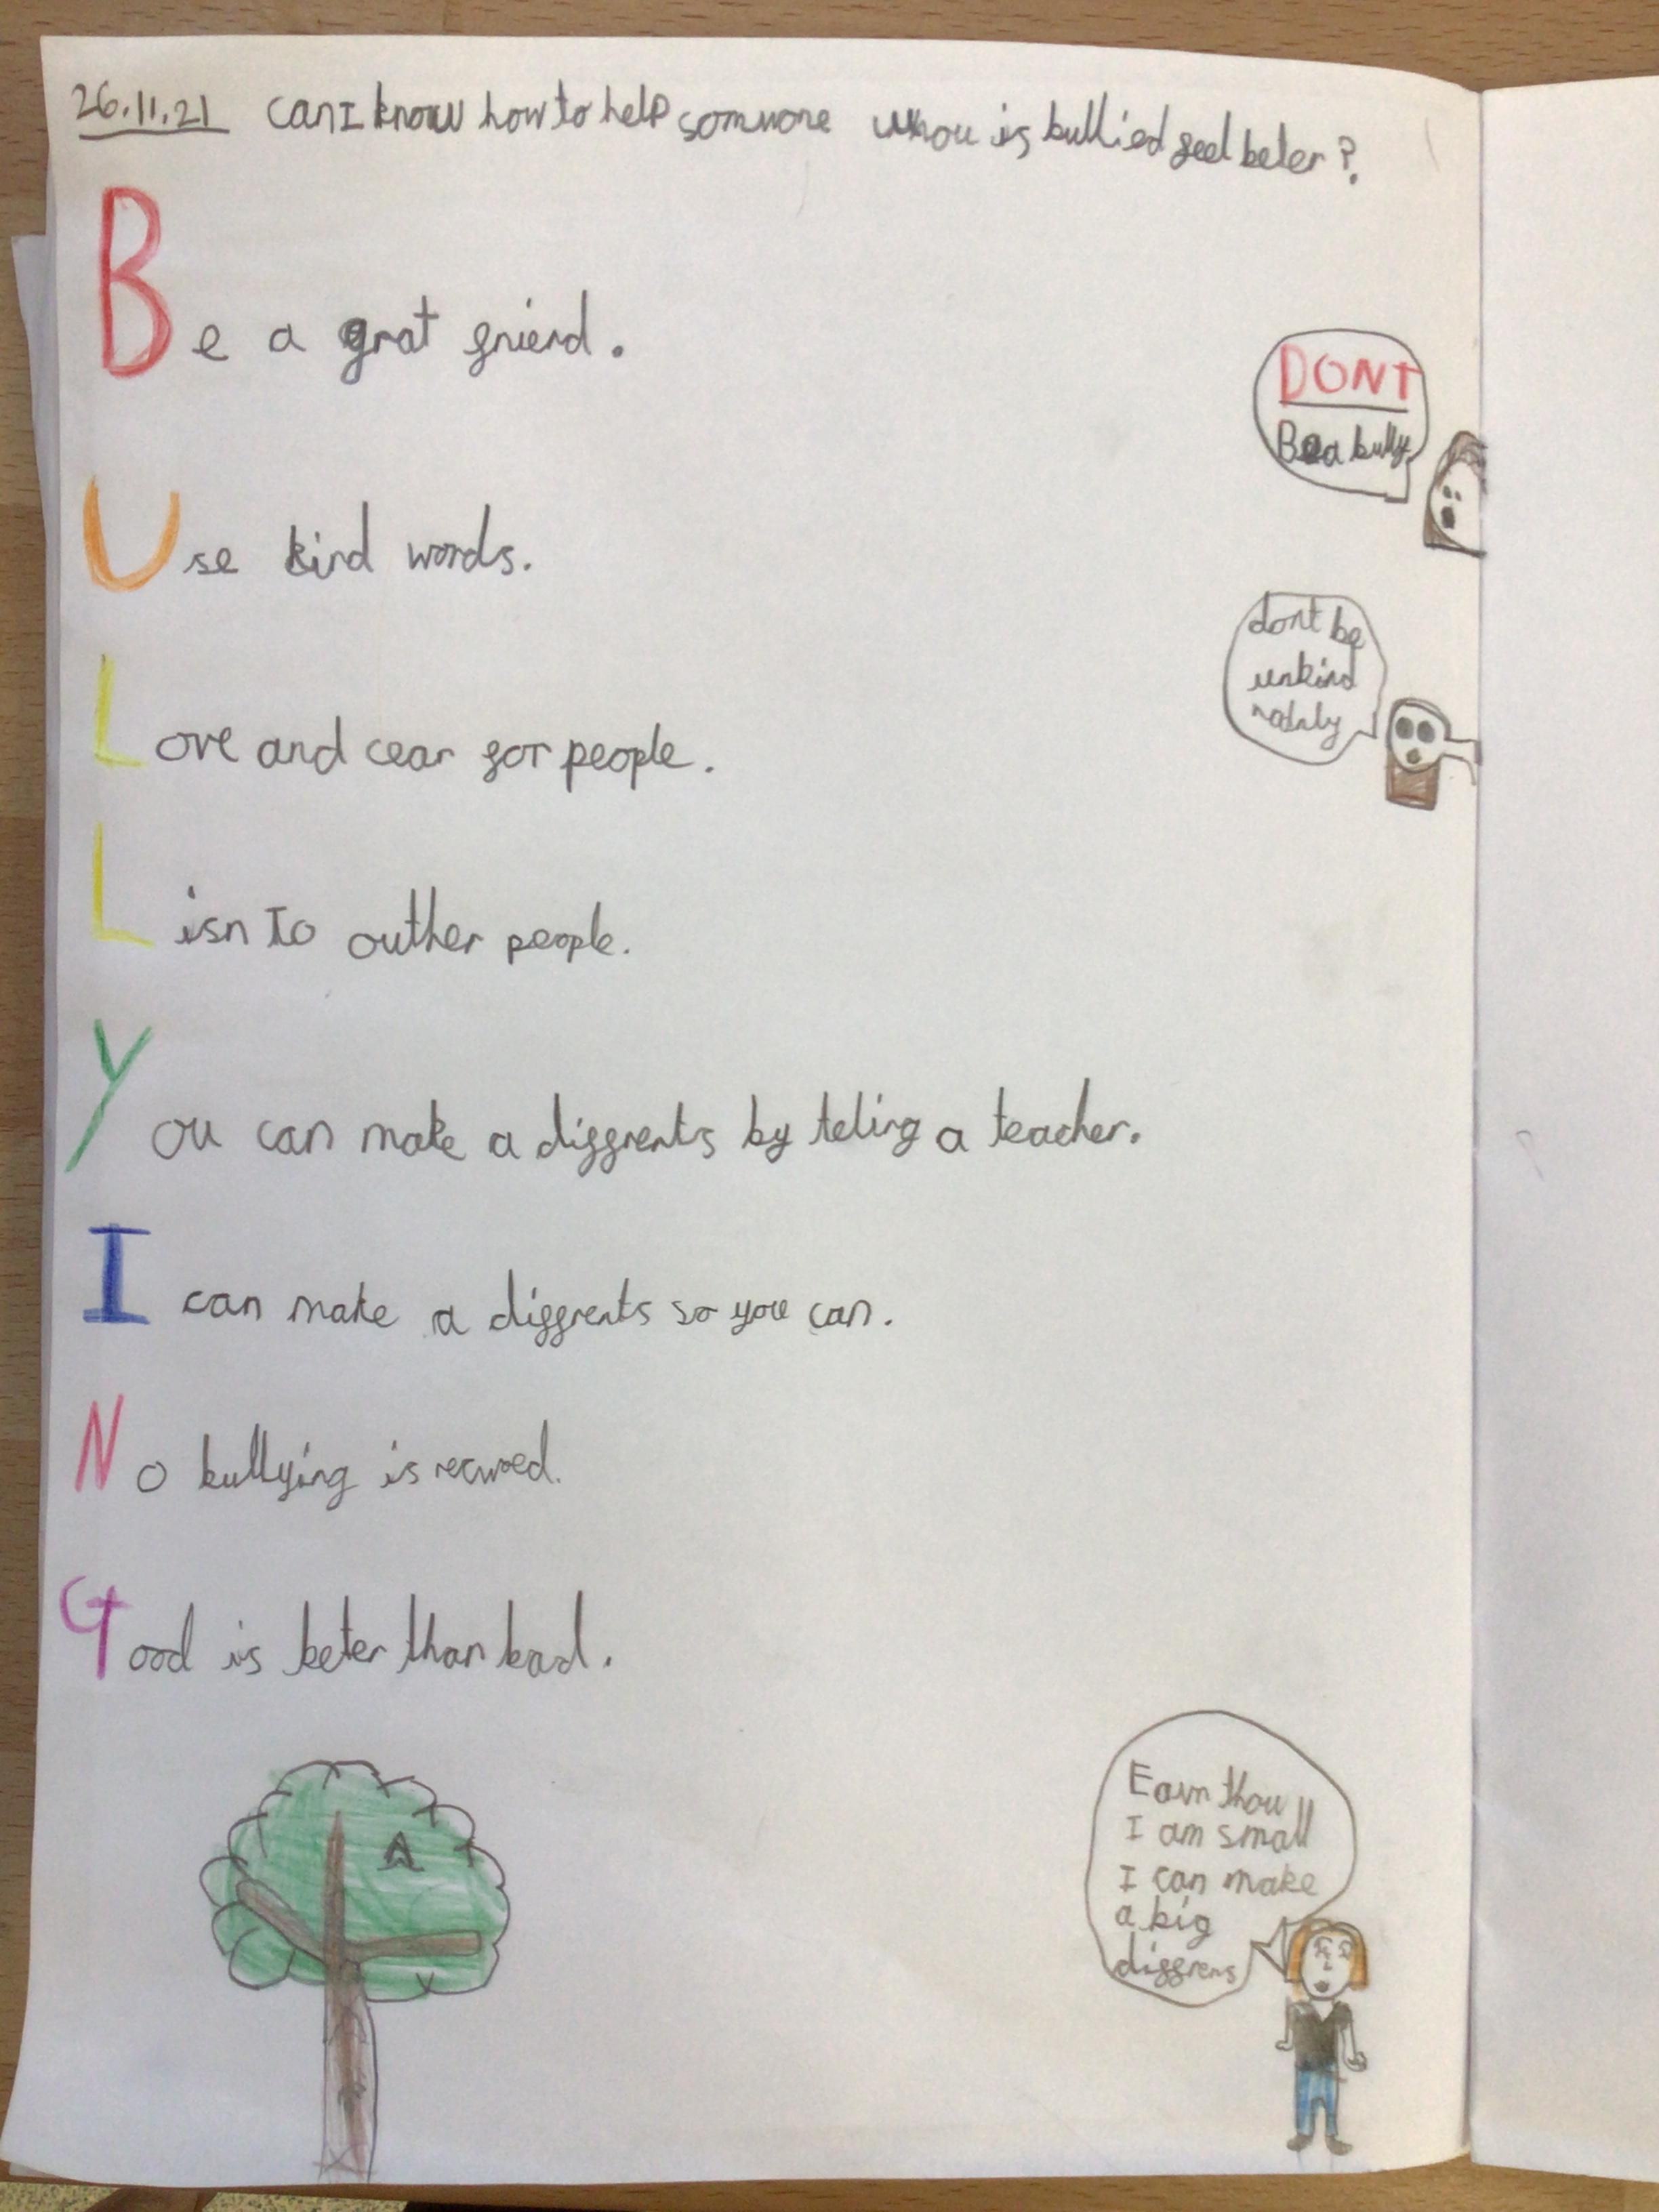 26.11.21 can I know how to help somwone whou is bullied feel beter?
Be a grat friend.
DONT
Be a bully.
Use kind words.
dont be
unkind
Love and cear for people.
Lisn to outher people.
You can make a diffrents by teling a teacher.
I can make a diffrents so you can.
No bullying is
Good is beter than bad.
A
Eavn thou
I am small
I can make
a big
diffrens